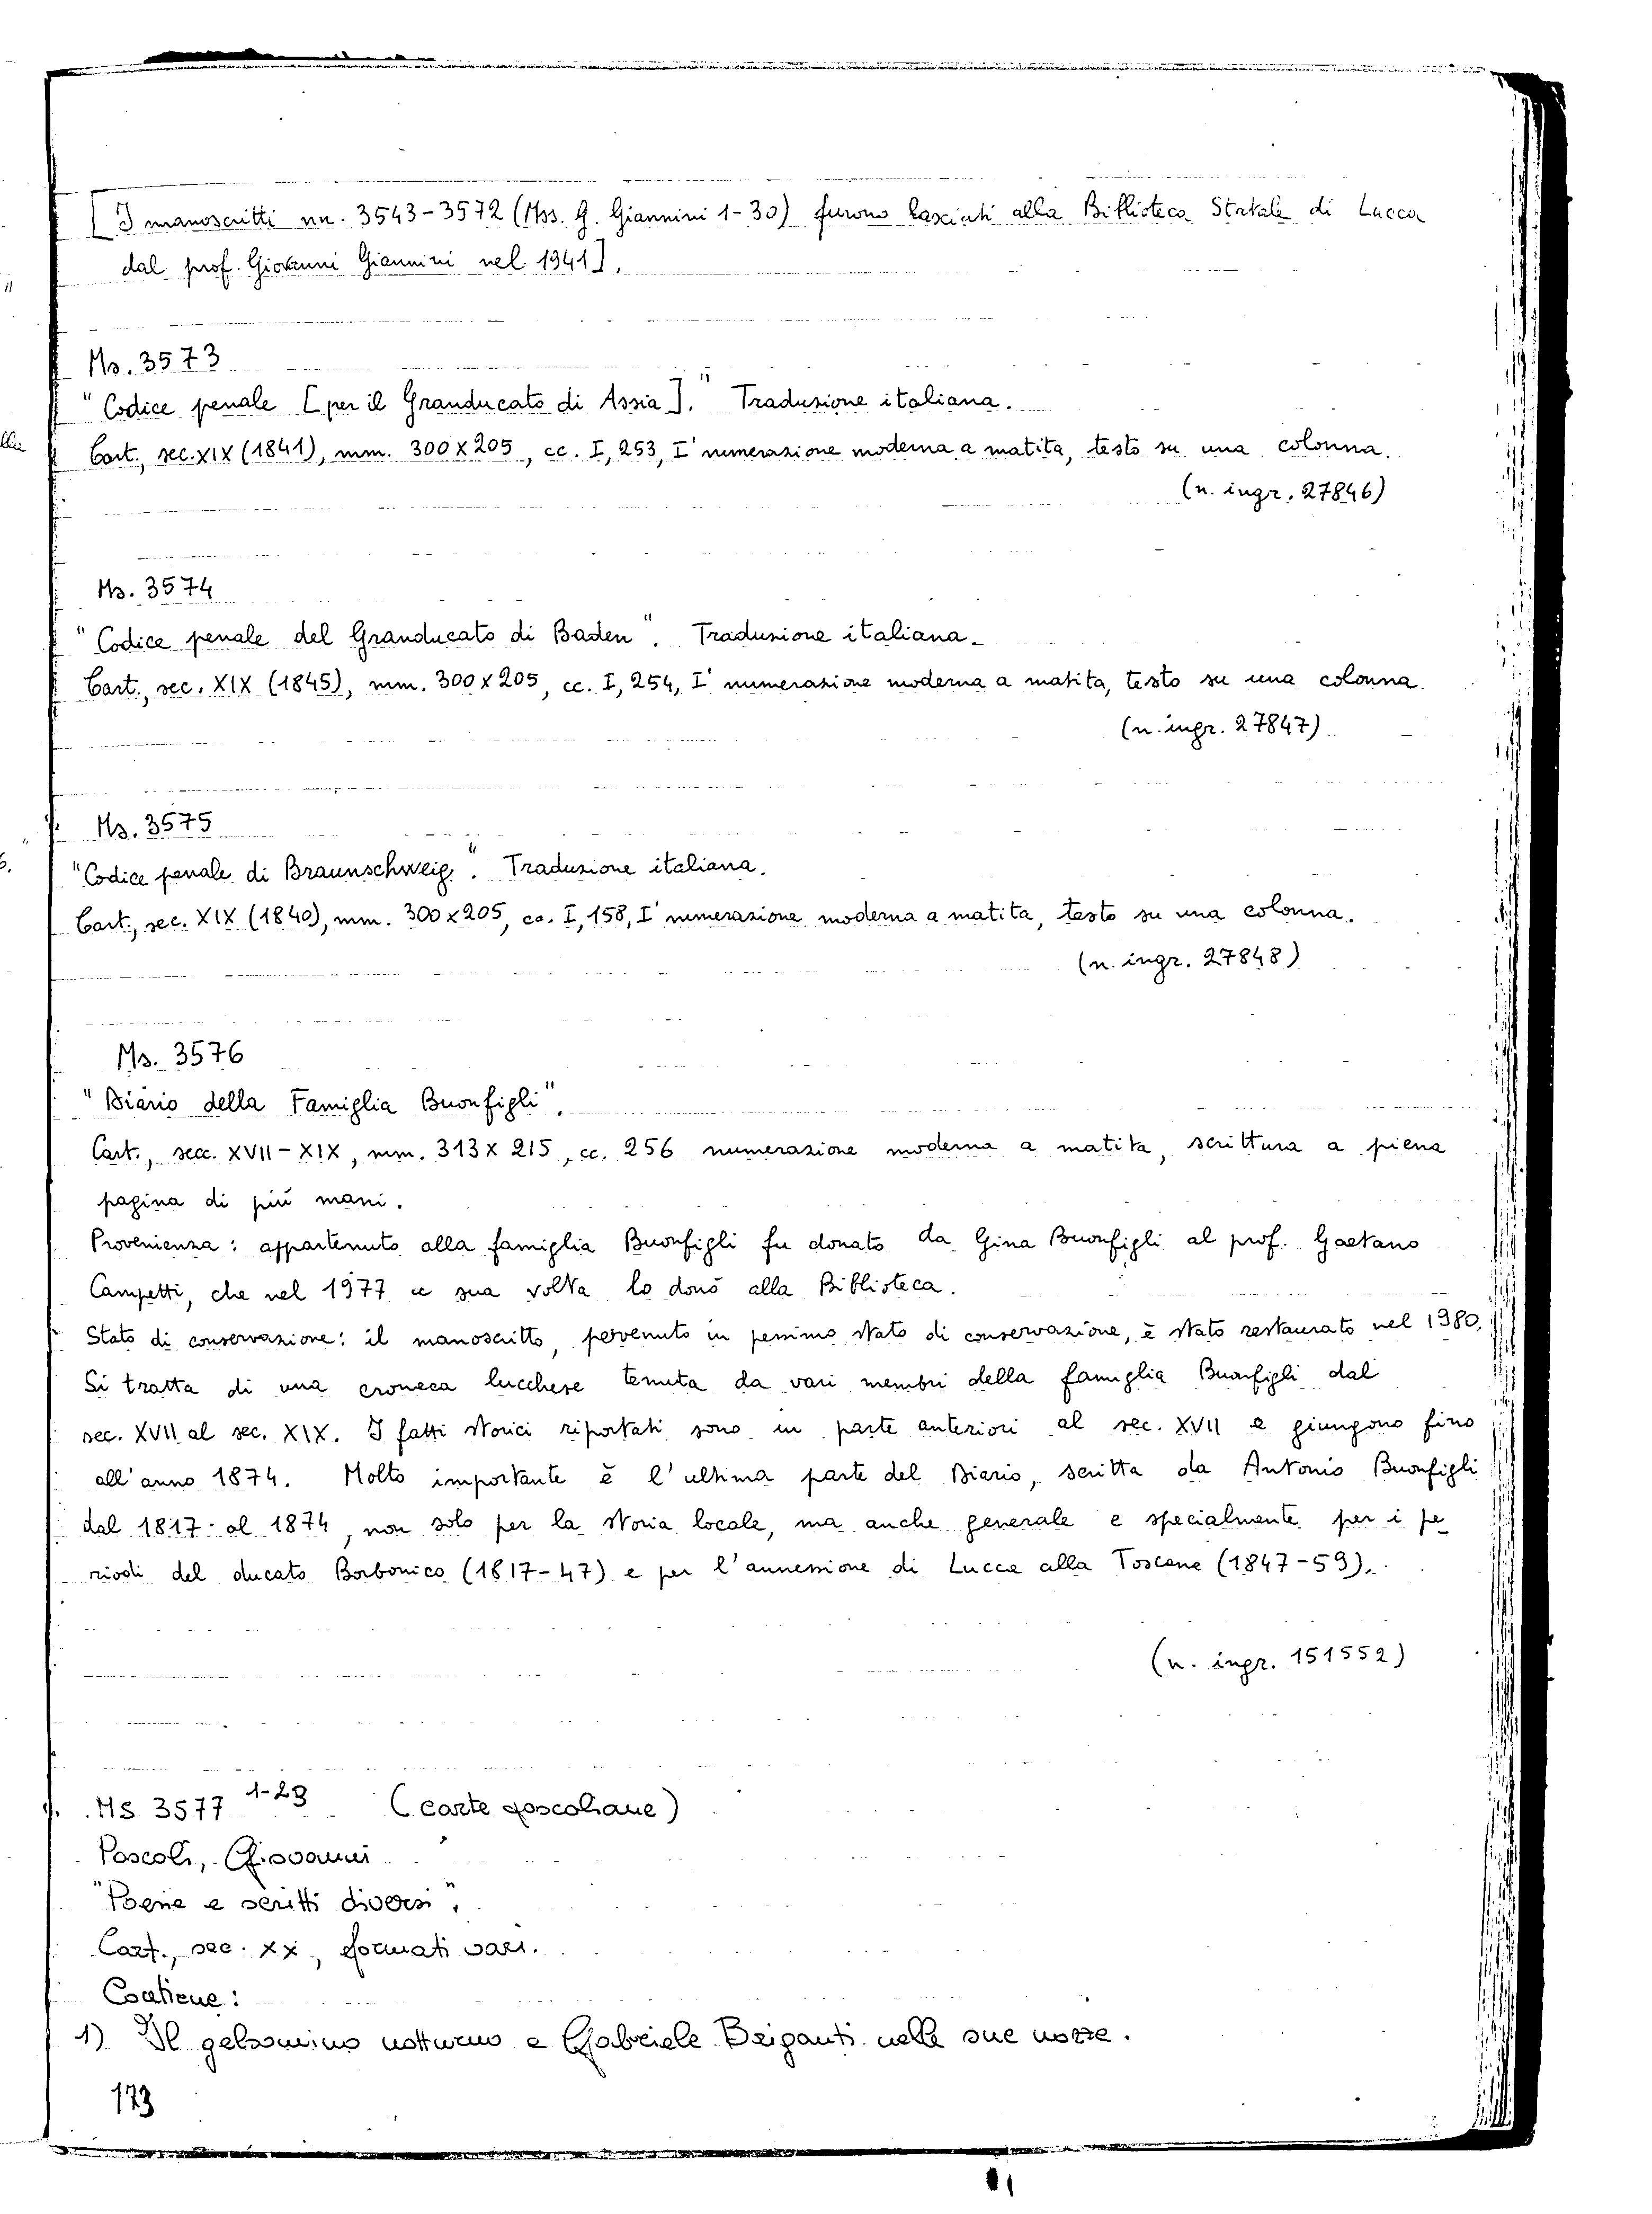 [I manoscritti nn. 3543-3572 (Mss. G. Giannini 1-30) furono lasciati alla Biblioteca Statale di Lucca
dal prof. Giovanni Giannini nel 1941].
Ms. 3573
"Codice penale [per il Granducato di Assia]". Traduzione italiana.
Cart., sec. XIX (1841), mm. 300x205, cc. I, 253, I' numerazione moderna a matita, testo su una colonna.
(n. ingr. 27846)
Ms. 3574
"Codice penale del Granducato di Baden". Traduzione italiana.
Cart., sec. XIX (1845), mm. 300x205, cc. I, 254, I' numerazione moderna a matita, testo su una colonna
(n. ingr. 27847)
Ms. 3575
"Codice penale di Braunschweig". Traduzione italiana.
Cart., sec. XIX (1840), mm. 300x205, cc. I, 158, I' numerazione moderna a matita, testo su una colonna.
(n. ingr. 27848)
Ms. 3576
"Diario della Famiglia Buonfigli".
Cart., secc. XVII-XIX, mm. 313x215, cc. 256 numerazione moderna a matita, scrittura a piena
pagina di più mani.
Provenienza: appartenuto alla famiglia Buonfigli fu donato da Gina Buonfigli al prof. Gaetano
Campetti, che nel 1977 a sua volta lo donò alla Biblioteca.
Stato di conservazione: il manoscritto, pervenuto in pessimo stato di conservazione, è stato restaurato nel 1980.
Si tratta di una cronaca lucchese tenuta da vari membri della famiglia Buonfigli dal
sec. XVII al sec. XIX. I fatti storici riportati sono in parte anteriori al sec. XVII e giungono fino
all'anno 1874. Molto importante è l'ultima parte del Diario, scritta da Antonio Buonfigli
dal 1817 al 1874, non solo per la storia locale, ma anche generale e specialmente per i pe
riodi del ducato Borbonico (1817-47) e per l'annessione di Lucca alla Toscana (1847-59).
(n. ingr. 151552)
MS 3577 1-23 (carte pascoliane)
Pascoli, Giovanni
"Poesie e scritti diversi".
Cart., sec. XX, formati vari.
Contiene:
1) Il gelsomino notturno a Gabriele Briganti nelle sue nozze.
173